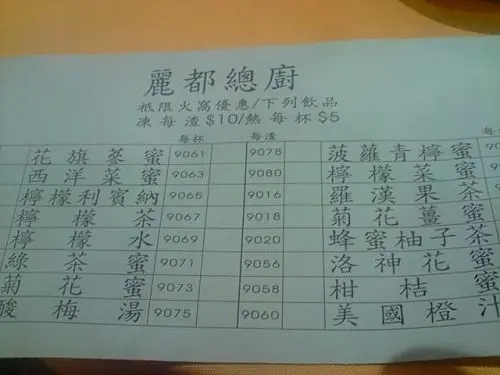 麗都總廚
祗限火窩優惠/下列飲品
凍每渣$10/熱每杯$5
每杯 每渣 每
花旗蔘蜜 9061 9078 菠蘿青檸蜜
西洋菜蜜 9063 9080 檸檬菜蜜
檸檬利賓納 9065 9016 羅漢果茶
檸檬茶 9067 9018 菊花薑蜜
檸檬水 9069 9020 蜂蜜柚子茶
綠茶蜜 9071 9056 洛神花蜜
菊花蜜 9073 9058 柑桔蜜
酸梅湯 9075 9060 美國橙汁